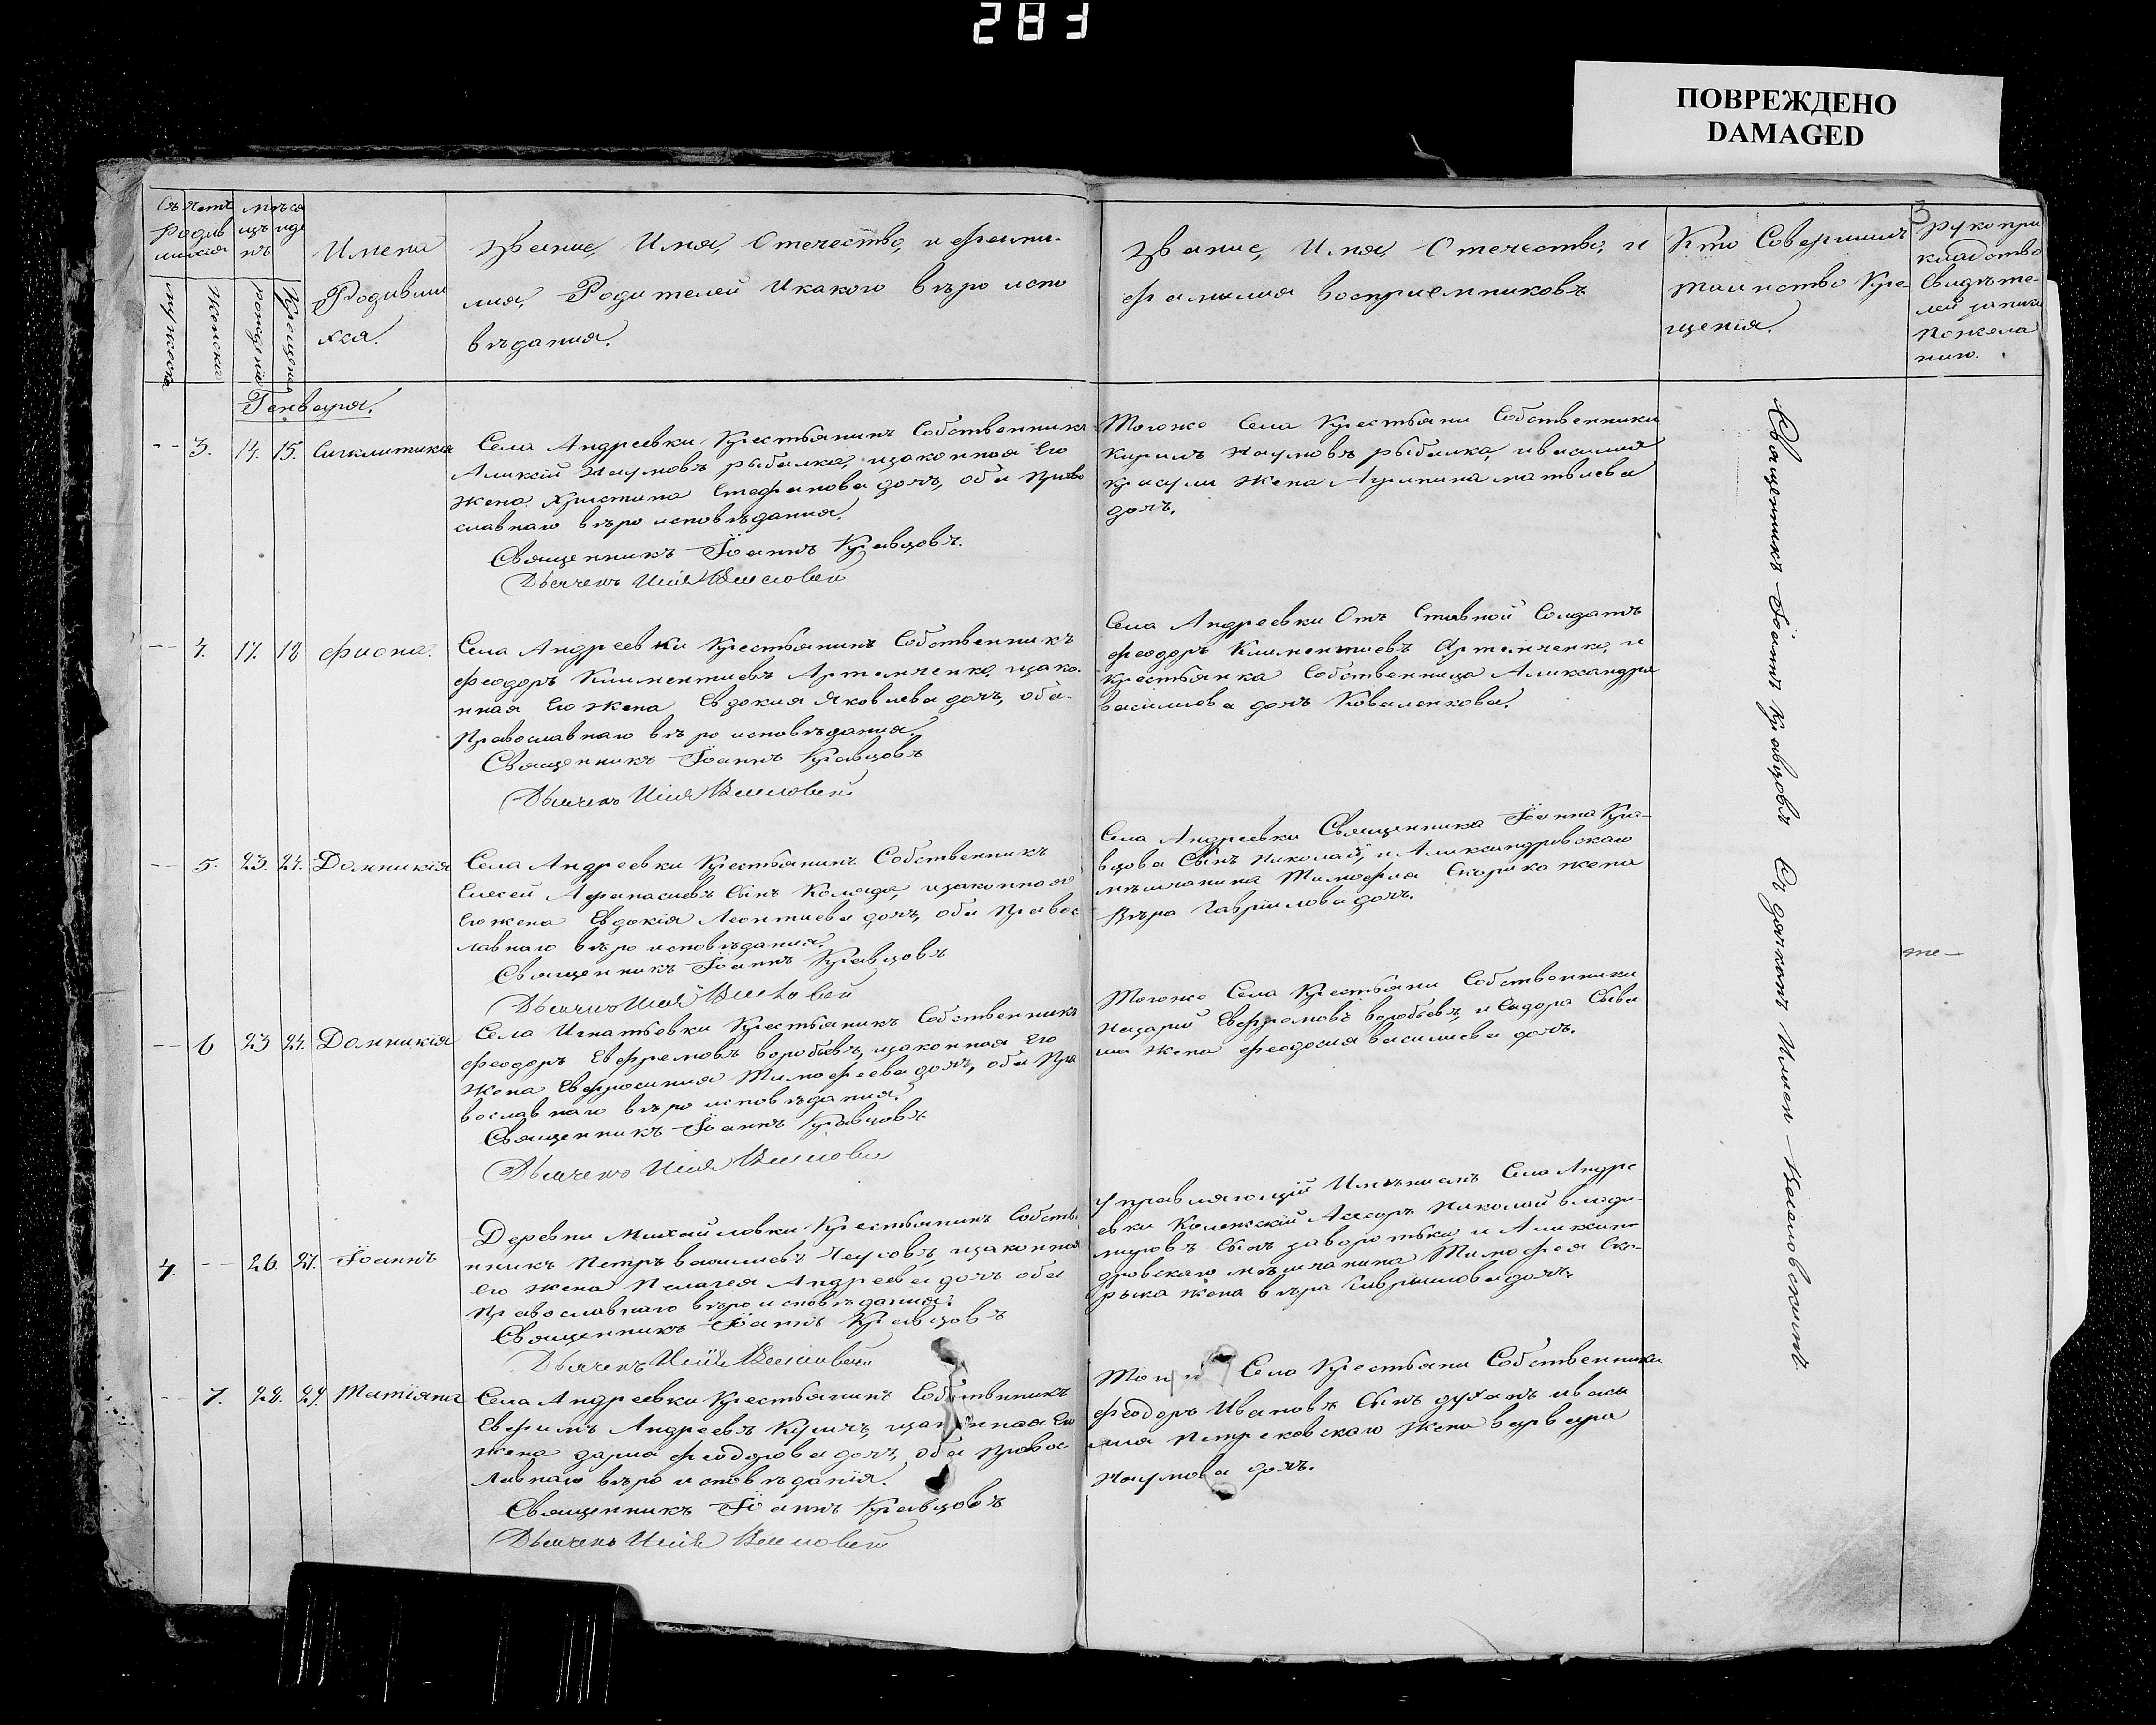 283
ПОВРЕЖДЕНО
DAMAGED
3
Счетъ
Родив
шихся
мужеска
женска
Мѣся
цъ иде
нъ
рожденія
крещенія
Имена
Родивши
хся.
Звание, Имя, Отечество, и фами-
лия, Родителей Икакого вѣро испо
вѣдания.
Звание, Имя, Отечество, и
фамилия восприемниковъ
Кто Совершилъ
таинство Кре-
щения.
рукопри
кладство
Свидѣте-
лей записи
Пожела
нию.
Генваря.
-- 3. 14. 15. Сигклитикия
Села Андреевки Крестьянинъ Собственникъ
Аликсій Наумовъ рыбалка, изаконная Его
жена Христина Стефанова дочь, оба Право
славнаго вѣро исповѣдания.
Священникъ Іоаннъ Кравцовъ.
Дьячекъ Илія Веселовскій
Тогоже Села Крестьяни Собственники
Кирилъ Наумовъ рыбалка, ивасилия
жена матвѣева
дочь.
-- 4. 17. 18 фиона.
Села Андреевки Крестьянинъ Собственникъ
феодоръ Климентиевъ Артемченко, изако-
нная Его жена Евдокия Яковлева дочь, оба-
Православнаго вѣро исповѣдания.
Священникъ Іоаннъ Кравцовъ
Дьячекъ Илія Веселовскій
Села Андреевки Отъ Ставной Солдатъ
феодоръ Климентиевъ Артемченко, и
крестьянка Собственница Александра
василиева дочь Коваленкова.
-- 5. 23. 24. Домникія
Села Андреевки Крестьянинъ Собственникъ
Елисей Афанасиевъ Сынъ Коляда, изаконная
Его жена Евдокія Леонтиева дочь, оба Правос
лавнаго вѣро исповѣдания.
Священникъ Іоаннъ Кравцовъ
Дьячекъ Илія Веселовскій
Села Андреевки Священника Іоанна Кра-
вцова Сынъ Николай, и Александровскаго
мѣщанина Тимофея Скорико жена
Вѣра Гавриилова дочь.
-- 6 23 24. Домникія
Села Игнатьевки Крестьянинъ Собственникъ
феодоръ Евфремовъ воробьевъ, изаконная Его
жена Евфросиния Тимофеева дочь, оба Пра
вославнаго вѣро исповѣдания.
Священникъ Іоаннъ Кравцовъ
Дьячекъ Илія Веселовскій
Тогоже Села Крестьяни Собственники
Назарий Евфремовъ воробьевъ, и Сидора
жена феодосия василиева дочь.
4. -- 26. 27. Іоаннъ
Деревни Михайловки Крестьянинъ Собстве
нникъ Петръ василиевъ изаконная
его жена Пелагея Андреева дочь оба
Православнаго вѣро исповѣдания.
Священникъ Іоаннъ Кравцовъ
Дьячекъ Илія Веселовскій
Управляющій Имѣниемъ Села Андре
евки Колежскій Асесоръ Николай влади-
мировъ Сынъ заворотько, и Алексан-
дровскаго мѣщанина Тимофея Ско-
рика жена вѣра Гавриилова дочь.
-- 7. 28. 29. Татіяна
Села Андреевки Крестьянинъ Собственникъ
Евфимъ Андреевъ изаконная Его
жена дария феодорова дочь, оба Правос
лавнаго вѣро исповѣданія.
Священникъ Іоаннъ Кравцовъ
Дьячекъ Илія Веселовскій
Села Крестьяни Собственники
феодоръ Ивановъ Сынъ иваси
лия Петраковскаго жена варвара
Наумова дочь.
Священникъ Іоаннъ Кравцовъ Съ дячкомъ Илиею Веселовскимъ